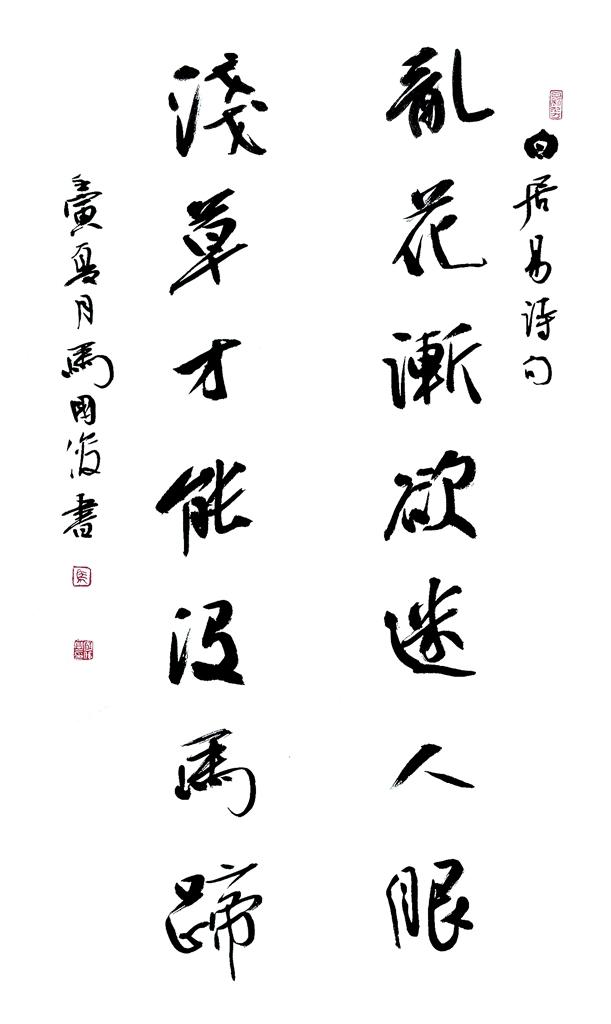 白居易詩句
亂花漸欲迷人眼
淺草才能没馬蹄
壬寅夏月馬国俊書